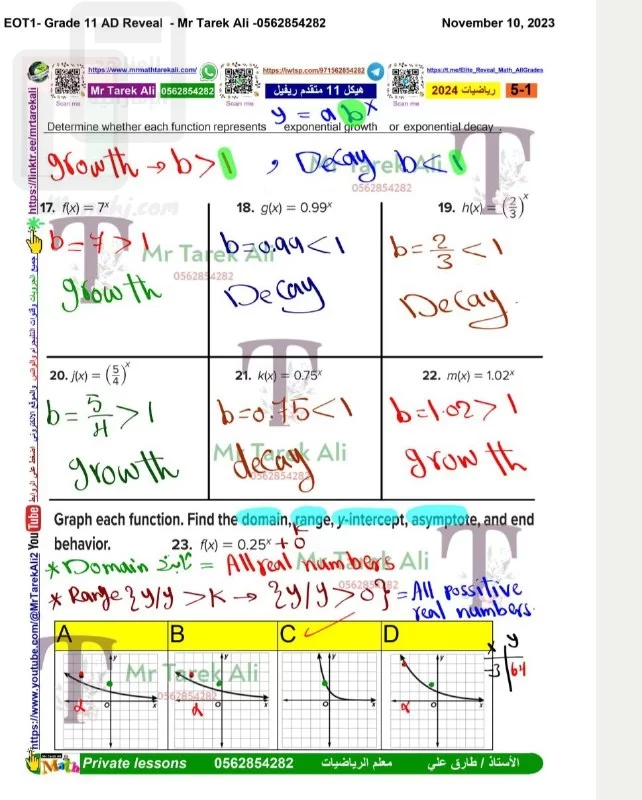 EOT1- Grade 11 AD Reveal - Mr Tarek Ali -0562854282 November 10, 2023
https://www.mrmathtarekali.com/ https://iwtsp.com/971562854282 https://t.me/Elite_Reveal_Math_AllGrades
Mr Tarek Ali 0562854282 هيكل 11 متقدم ريفيل رياضيات 2024 5-1
Scan me Scan me Scan me
y = a b^x
Determine whether each function represents exponential growth or exponential decay .
growth → b > 1 , Decay b < 1
Mr Tarek Ali
0562854282
17. f(x) = 7^x 18. g(x) = 0.99^x 19. h(x) = (2/3)^x
b = 7 > 1 b = 0.99 < 1 b = 2/3 < 1
Mr Tarek Ali
0562854282
growth Decay Decay.
20. j(x) = (5/4)^x 21. k(x) = 0.75^x 22. m(x) = 1.02^x
b = 5/4 > 1 b = 0.75 < 1 b = 1.02 > 1
Mr Tarek Ali
0562854282
growth decay growth
Graph each function. Find the domain, range, y-intercept, asymptote, and end
behavior. 23. f(x) = 0.25^x + 0
K
* Domain ثابت = All real numbers
Mr Tarek Ali
0562854282
* Range {y/y > K → {y/y > 0} = All possitive
real numbers.
A B C ✓ D
x y
-3 64
Mr Tarek Ali
0562854282
y y y y
O x O x O x O x
https://linktr.ee/mrtarekali
https://www.youtube.com/@MrTarekAli2 YouTube
Math Private lessons 0562854282 معلم الرياضيات الأستاذ / طارق علي